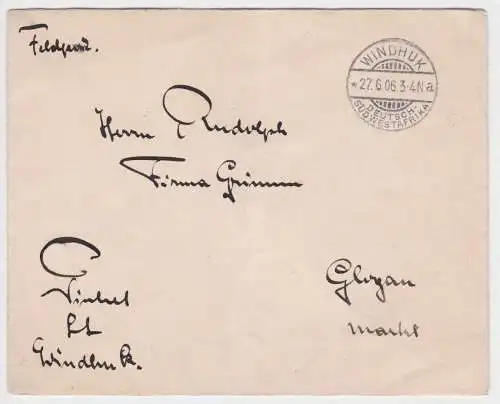 Feldpost.
WINDHUK
* 27.6.06.3-4N a
DEUTSCH-
SÜDWESTAFRIKA
Herrn Rudolph
Firma Grimm
Glogau
Markt
Windhuk.